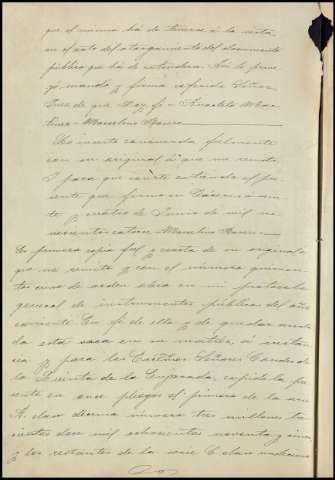 que el mismo há de tenerse á la vista
en el acto del otorgamiento del documento
público que há de extenderse. Así lo prove
yó, mandó y firma expresado Señor
Juez de que doy fé = Anacleto
= Marcelino Rasero
Lo inserto concuerda fielmente
con su original á que me remito
Y para que conste extiendo el pre
sente que firmo en Cáceres á vein
te y cuatro de Junio de mil no
vecientos catorce = Marcelino Rasero
Es primera copia fiel y exacta de su original á
que me remito y con el número quinien
tos cinco de orden obra en mi protocolo
general de instrumentos públicos del año
corriente. En fé de ello y de quedar anota
da esta saca en su matriz, á instan
cia y para los Excelmos Señores Condes de
la Quinta de la Enjarada, expido la pre
sente en once pliegos el primero de la serie
A. clase décima número tres millones tres
cientos dos mil ochocientos noventa y cinco
y los restantes de la serie C clase undécima